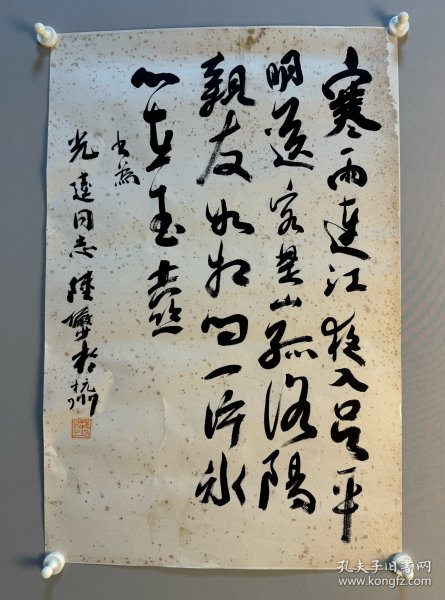 寒雨連江夜入吳平
明送客楚山孤洛陽
親友如相問一片冰
心在玉壺
书為
光達同志 陸於杭州
孔夫子旧书网
www.kongfz.com